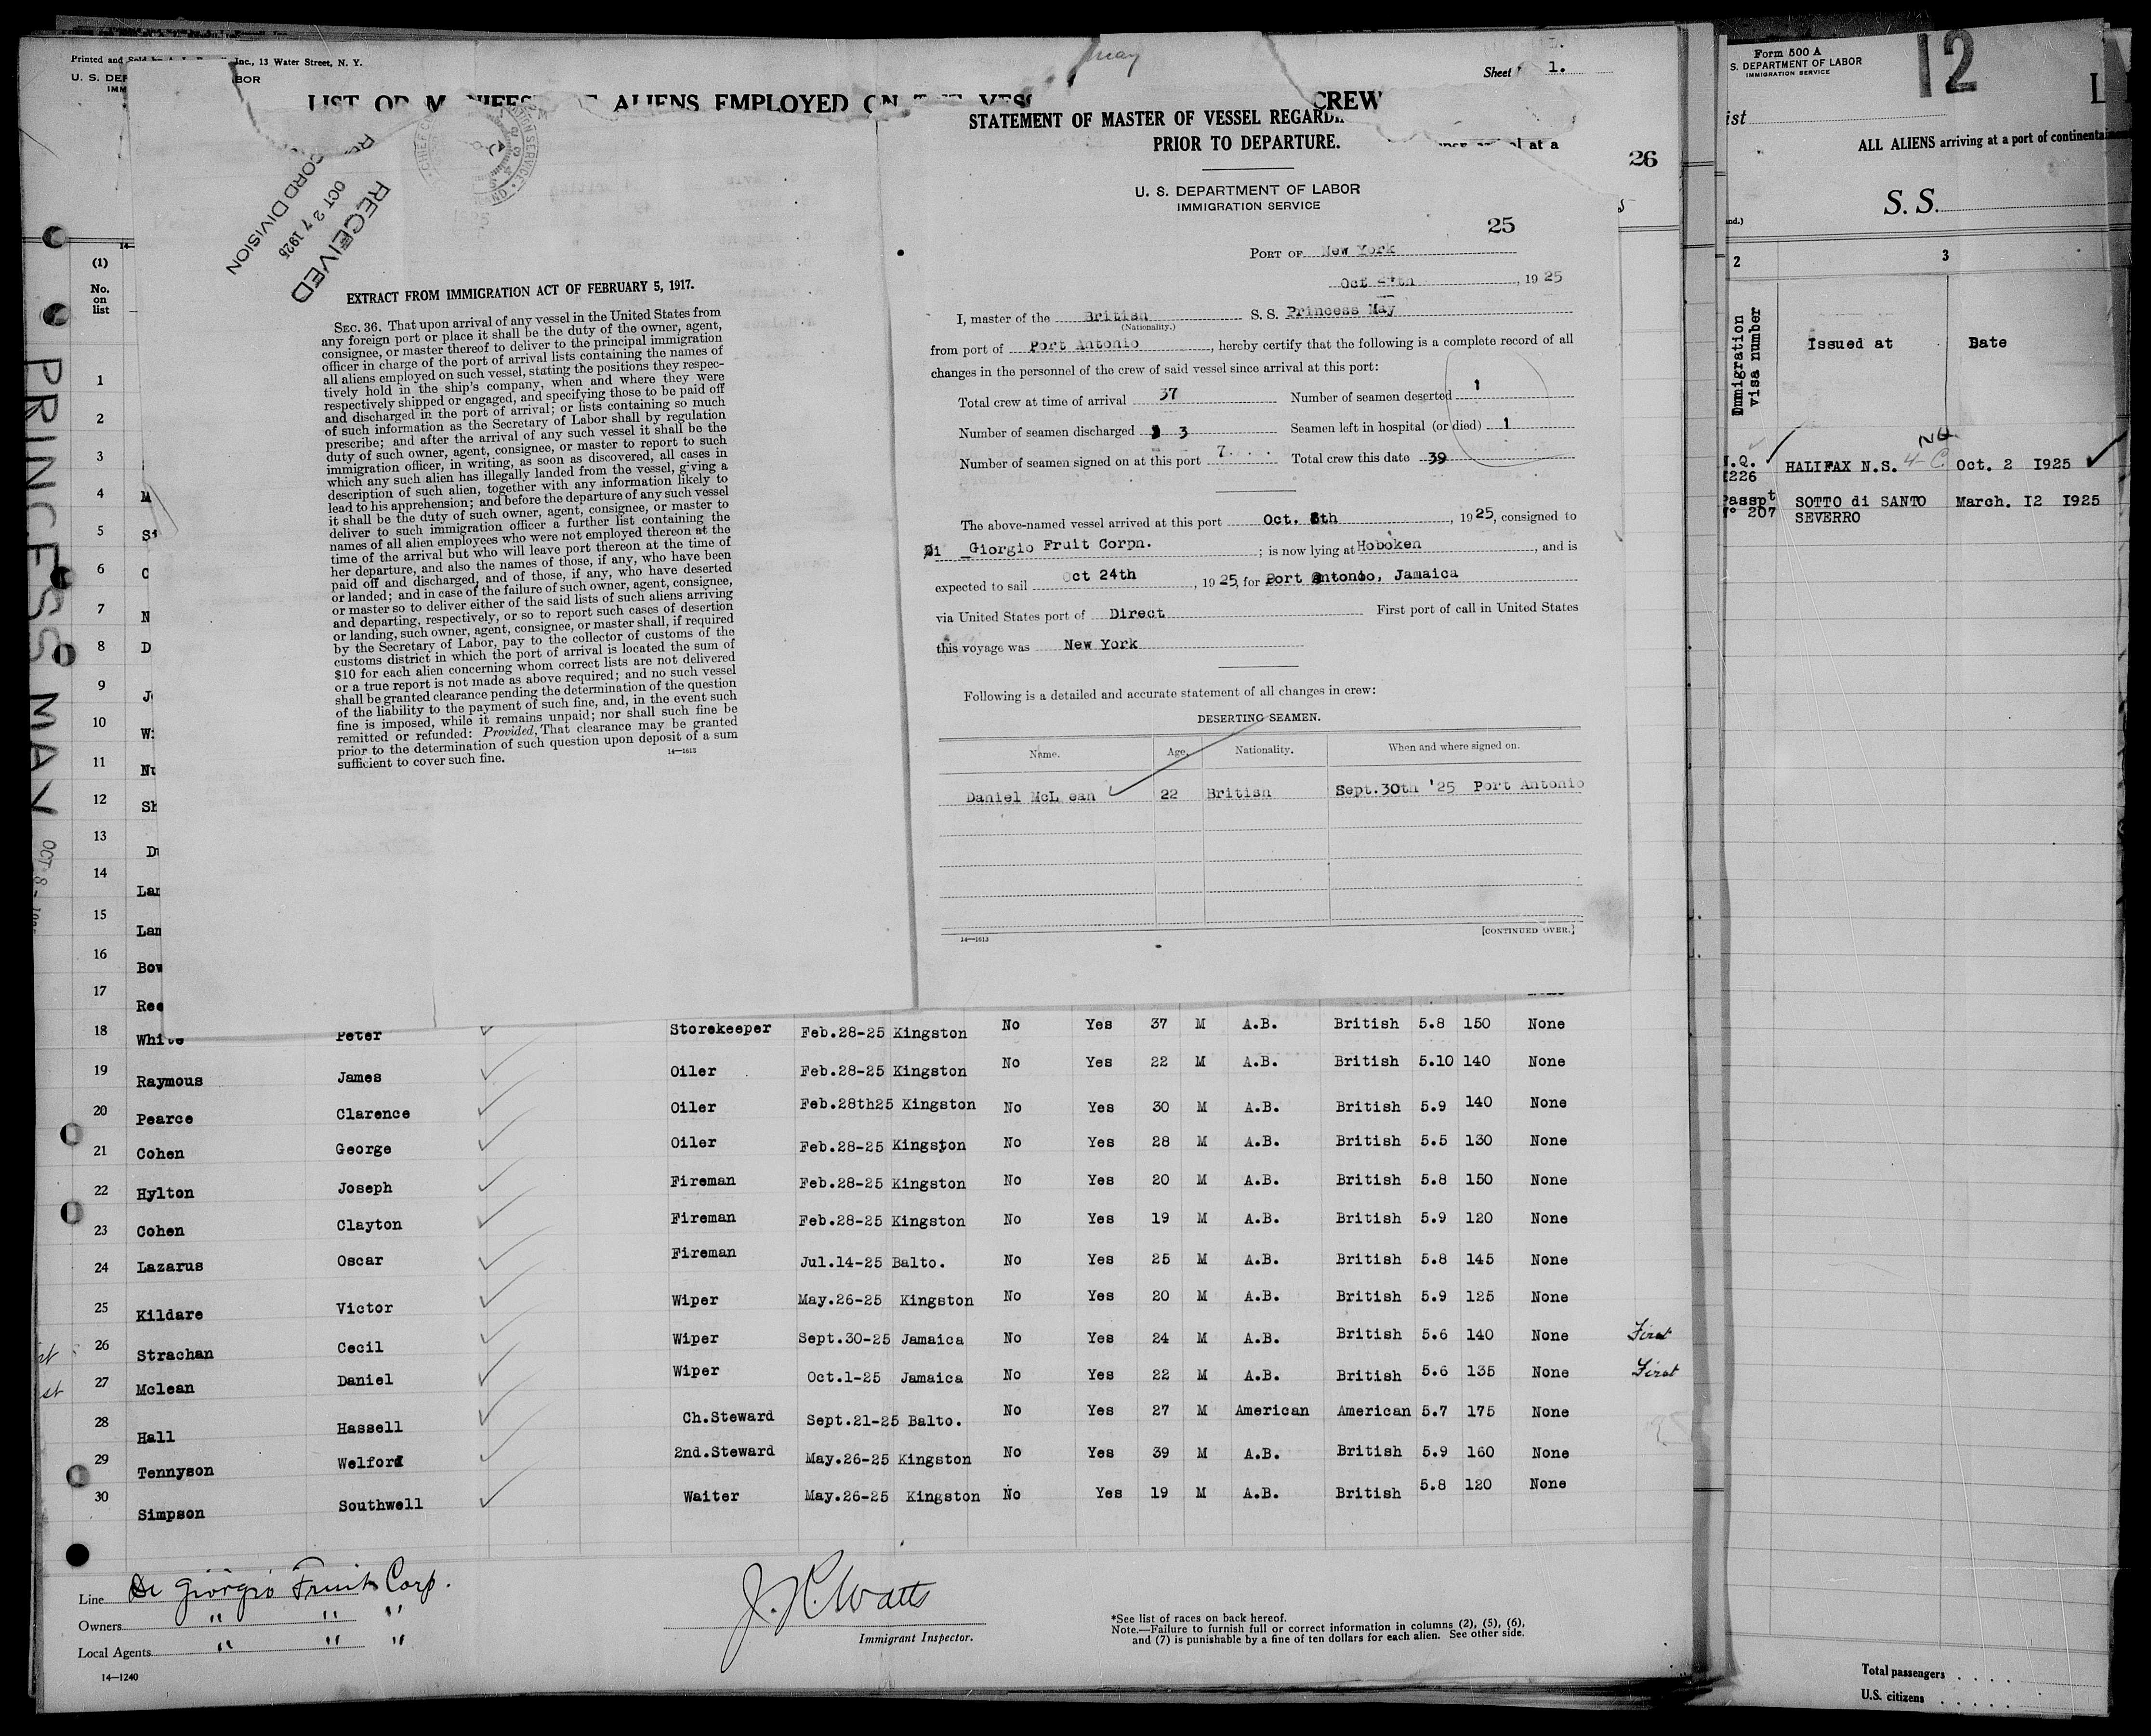 Printed and Inc., 13 Water Street, N. Y.
U. S. DEP BOR
IMM
LIST OR ALIENS EMPLOYED ON
May
Sheet 1.
CREW
STATEMENT OF MASTER OF VESSEL
PRIOR TO DEPARTURE.
at a
26
RECEIVED
OCT 27 1925
RECORD DIVISION
U. S. DEPARTMENT OF LABOR
IMMIGRATION SERVICE
25
PORT OF New York
Oct , 1925
I, master of the British S. S. Princess May
(Nationality.)
from port of Port Antonio, hereby certify that the following is a complete record of all
changes in the personnel of the crew of said vessel since arrival at this port:
Total crew at time of arrival 37 Number of seamen deserted 1
Number of seamen discharged 3 Seamen left in hospital (or died) 1
Number of seamen signed on at this port 7 Total crew this date 39
The above-named vessel arrived at this port Oct. 8th, 1925, consigned to
Di Giorgio Fruit Corpn. ; is now lying at Hoboken, and is
expected to sail Oct 24th, 1925, for Port Antonio, Jamaica
via United States port of Direct First port of call in United States
this voyage was New York
Following is a detailed and accurate statement of all changes in crew:
DESERTING SEAMEN.
Name. Age. Nationality. When and where signed on.
Daniel McL ean 22 British Sept.30th '25 Port Antonio
14—1613 [CONTINUED OVER.]
EXTRACT FROM IMMIGRATION ACT OF FEBRUARY 5, 1917.
SEC. 36. That upon arrival of any vessel in the United States from
any foreign port or place it shall be the duty of the owner, agent,
consignee, or master thereof to deliver to the principal immigration
officer in charge of the port of arrival lists containing the names of
all aliens employed on such vessel, stating the positions they respec-
tively hold in the ship's company, when and where they were
respectively shipped or engaged, and specifying those to be paid off
and discharged in the port of arrival; or lists containing so much
of such information as the Secretary of Labor shall by regulation
prescribe; and after the arrival of any such vessel it shall be the
duty of such owner, agent, consignee, or master to report to such
immigration officer, in writing, as soon as discovered, all cases in
which any such alien has illegally landed from the vessel, giving a
description of such alien, together with any information likely to
lead to his apprehension; and before the departure of any such vessel
it shall be the duty of such owner, agent, consignee, or master to
deliver to such immigration officer a further list containing the
names of all alien employees who were not employed thereon at the
time of the arrival but who will leave port thereon at the time of
her departure, and also the names of those, if any, who have been
paid off and discharged, and of those, if any, who have deserted
or landed; and in case of the failure of such owner, agent, consignee,
or master so to deliver either of the said lists of such aliens arriving
and departing, respectively, or so to report such cases of desertion
or landing, such owner, agent, consignee, or master shall, if required
by the Secretary of Labor, pay to the collector of customs of the
customs district in which the port of arrival is located the sum of
$10 for each alien concerning whom correct lists are not delivered
or a true report is not made as above required; and no such vessel
shall be granted clearance pending the determination of the question
of the liability to the payment of such fine, and, in the event such
fine is imposed, while it remains unpaid; nor shall such fine be
remitted or refunded: Provided, That clearance may be granted
prior to the determination of such question upon deposit of a sum
sufficient to cover such fine.
14—1613
PRINCESS MAY OCT 8-
(1)
No.
on
list
1
2
3
4 M
5 S
6 C
7 N
8 D
9 J
10 Wi
11 Nu
12 Sh
13 Du
14 Lar
15 Lan
16 Bow
17 Ree
18 White Peter Storekeeper Feb.28-25 Kingston No Yes 37 M A.B. British 5.8 150 None
19 Raymous James Oiler Feb.28-25 Kingston No Yes 22 M A.B. British 5.10 140 None
20 Pearce Clarence Oiler Feb.28th25 Kingston No Yes 30 M A.B. British 5.9 140 None
21 Cohen George Oiler Feb.28-25 Kingston No Yes 28 M A.B. British 5.5 130 None
22 Hylton Joseph Fireman Feb.28-25 Kingston No Yes 20 M A.B. British 5.8 150 None
23 Cohen Clayton Fireman Feb.28-25 Kingston No Yes 19 M A.B. British 5.9 120 None
24 Lazarus Oscar Fireman Jul.14-25 Balto. No Yes 25 M A.B. British 5.8 145 None
25 Kildare Victor Wiper May.26-25 Kingston No Yes 20 M A.B. British 5.9 125 None
26 Strachan Cecil Wiper Sept.30-25 Jamaica No Yes 24 M A.B. British 5.6 140 None First
27 Mclean Daniel Wiper Oct.1-25 Jamaica No Yes 22 M A.B. British 5.6 135 None First
28 Hall Hassell Ch.Steward Sept.21-25 Balto. No Yes 27 M American American 5.7 175 None
29 Tennyson Welford 2nd.Steward May.26-25 Kingston No Yes 39 M A.B. British 5.9 160 None
30 Simpson Southwell Waiter May.26-25 Kingston No Yes 19 M A.B. British 5.8 120 None
Line Di Giorgio Fruit Corp.
Owners " " "
Local Agents " " "
14—1240
J. R. Watts
Immigrant Inspector.
*See list of races on back hereof.
Note.—Failure to furnish full or correct information in columns (2), (5), (6),
and (7) is punishable by a fine of ten dollars for each alien. See other side.
Form 500 A
S. DEPARTMENT OF LABOR
IMMIGRATION SERVICE
12
L
ist
ALL ALIENS arriving at a port of continenta
S. S.
2 3
Immigration
visa number
Issued at Date
.Q.
1226 HALIFAX N.S. 4-C Oct. 2 1925
Passpt
N° 207 SOTTO di SANTO March. 12 1925
SEVERRO
Total passengers
U.S. citizens